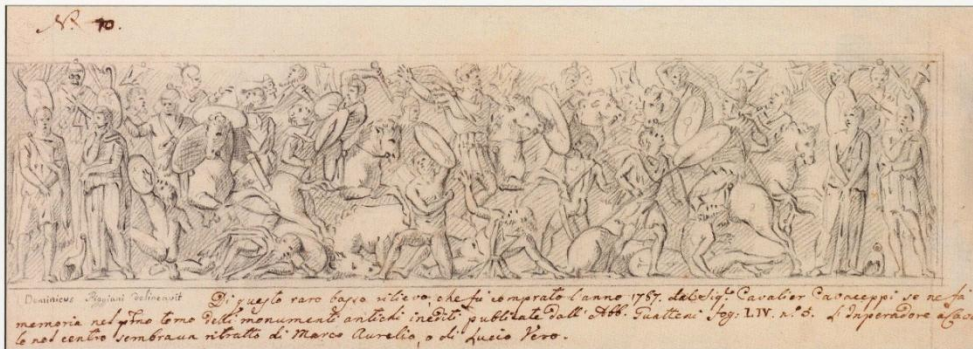 N. 10.
Dominicus delineavit Di questo raro basso rilievo, che fù comprato l'anno 1767. dal Sig.r Cavalier Cavaceppi se ne fà
memoria nel p.mo tomo delli monumenti antichi inediti publicati dall'Abb. Guatteni fog: LIV. n. 3. L'Inperadore a Caval
lo nel centro sembrava ritratto di Marco Aurelio, o di Lucio Vero.